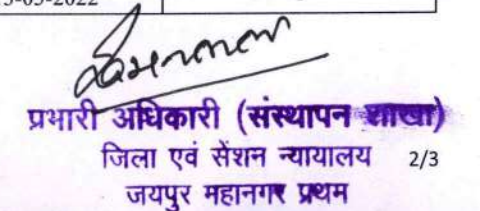 -03-2022
प्रभारी अधिकारी (संस्थापन शाखा)
जिला एवं सेशन न्यायालय 2/3
जयपुर महानगर प्रथम